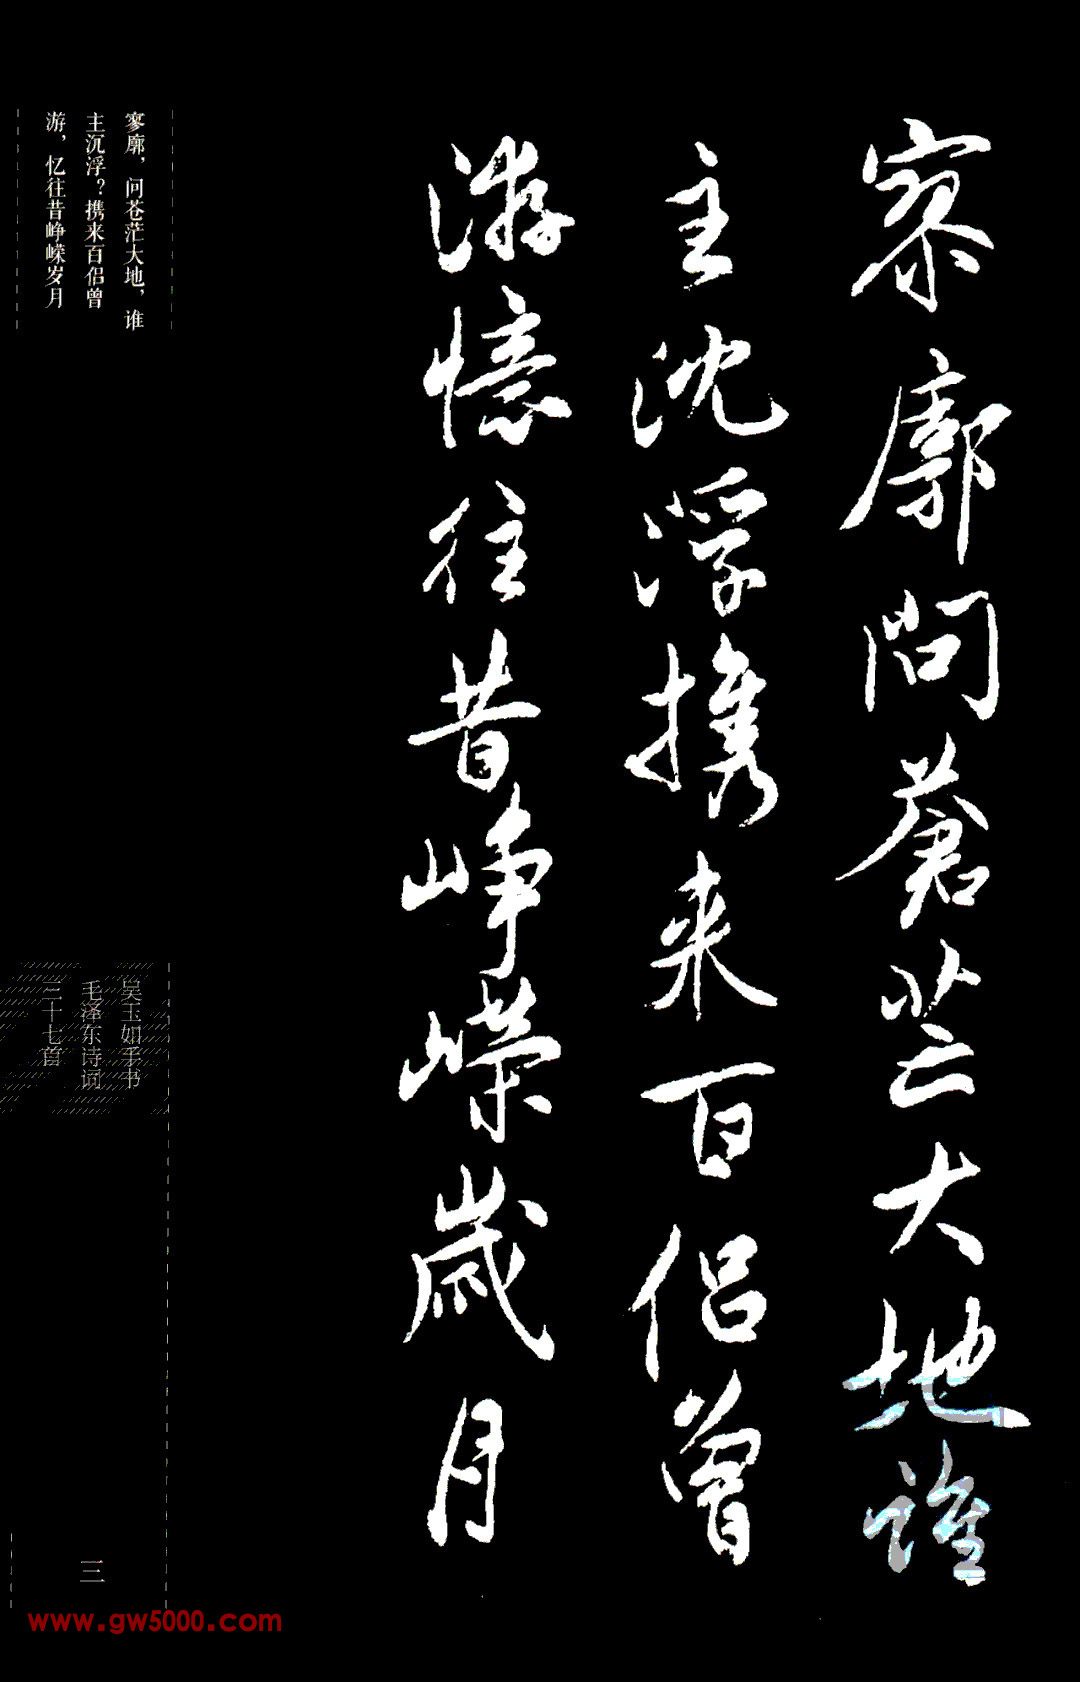 寥廓問蒼茫大地誰
主沈浮攜来百侣曾
游憶往昔崢嶸歲月
寥廓，问苍茫大地，谁
主沉浮？携来百侣曾
游，忆往昔峥嵘岁月
吴玉如手书
毛泽东诗词
三十七首
三
www.gw5000.com